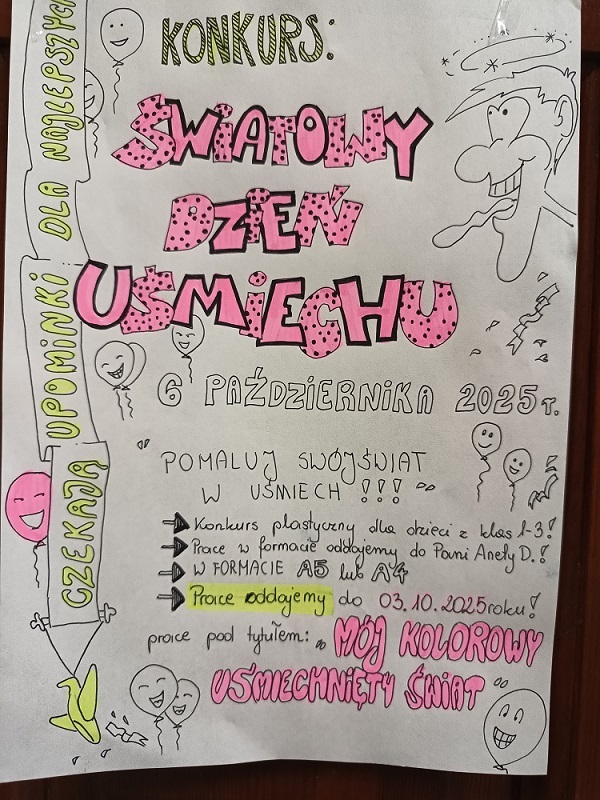 KONKURS:
ŚWIATOWY
DZIEŃ
UŚMIECHU
6 PAŹDZIERNIKA 2025r.
„POMALUJ SWÓJ ŚWIAT
W UŚMIECH!!!”
Konkurs plastyczny dla dzieci z klas 1-3!
Prace w formacie oddajemy do Pani Anety D.!
W FORMACIE A5 lub A4
Prace oddajemy do 03.10.2025roku!
prace pod tytułem: „MÓJ KOLOROWY
UŚMIECHNIĘTY ŚWIAT”
CZEKAJĄ UPOMINKI DLA NAJLEPSZYCH